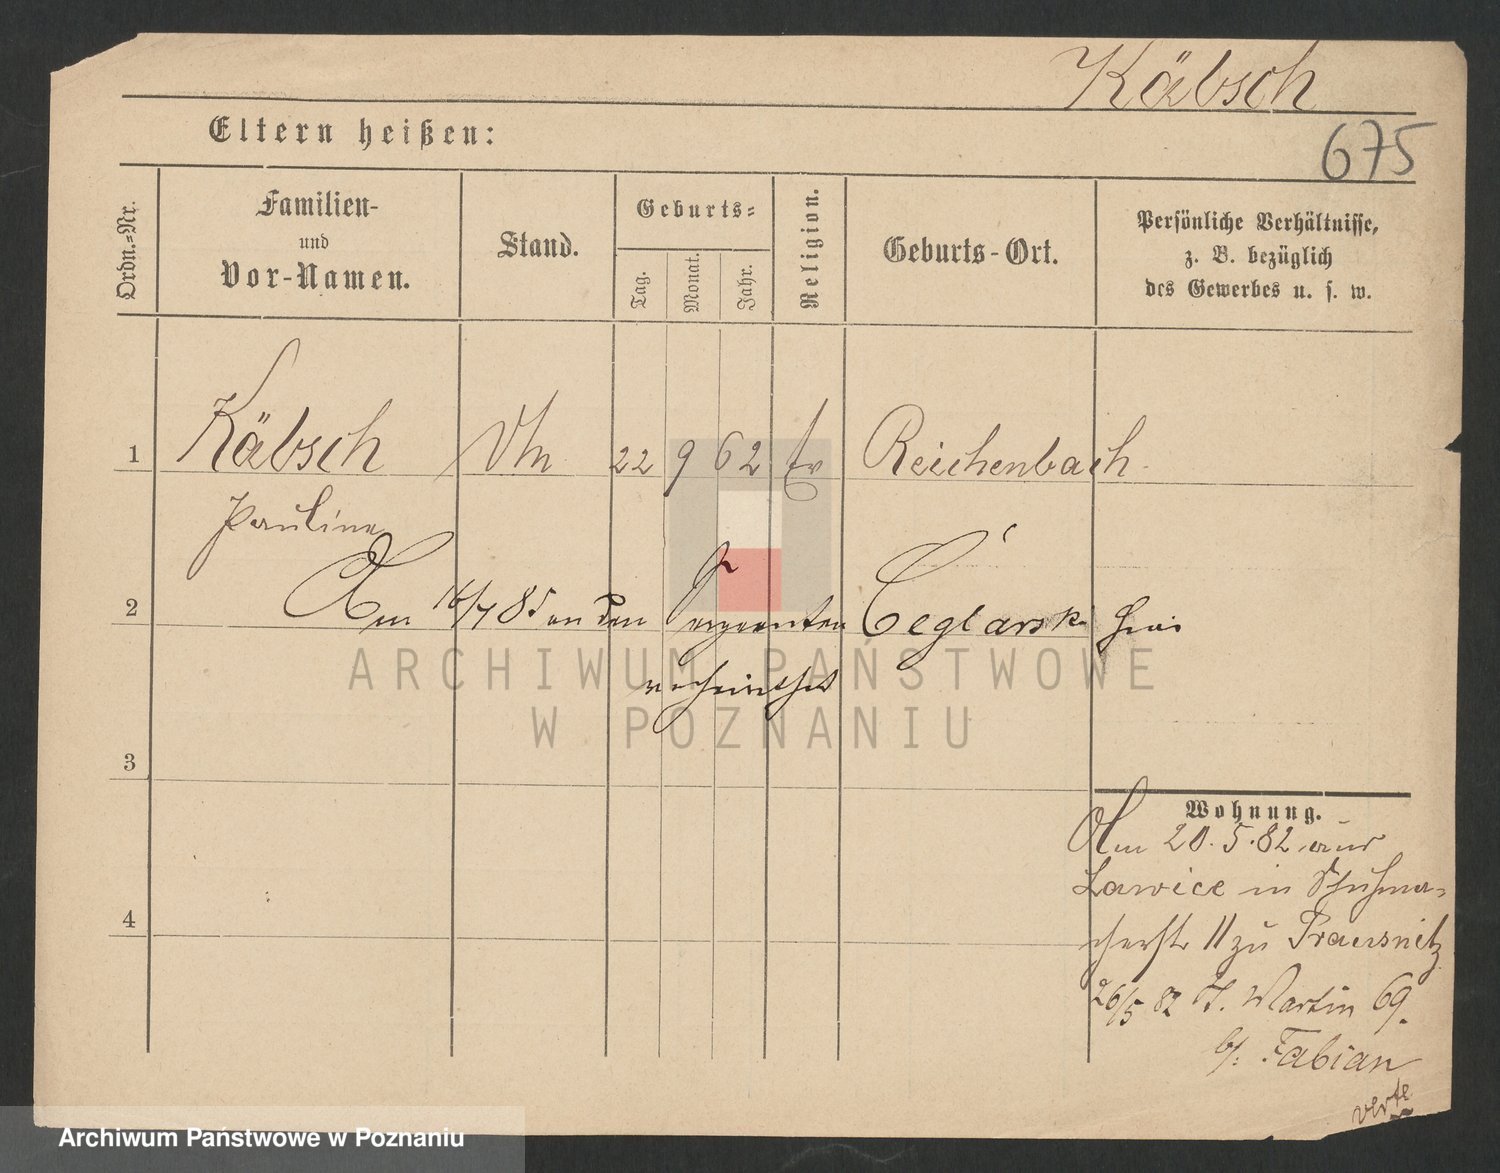 Käbsch
675
Eltern heißen:
Ordn.=Nr.
Familien-
und
Vor-Namen.
Stand.
Geburts=
Tag.
Monat.
Jahr.
Religion.
Geburts-Ort.
Persönliche Verhältnisse,
z. B. bezüglich
des Gewerbes u. s. w.
1 Käbsch 22 9 62 Ev Reichenbach
Pauline
2 Am 16/7 85 an den Ceglarski
verheirathet
ARCHIWUM PAŃSTWOWE
W POZNANIU
3
4
Wohnung.
Am 20.5.82 aus
Lawice in Schuhma-
cherstr 11 zu Prausnitz
26/5 82 St. Martin 69.
b/: Fabian
verte
Archiwum Państwowe w Poznaniu